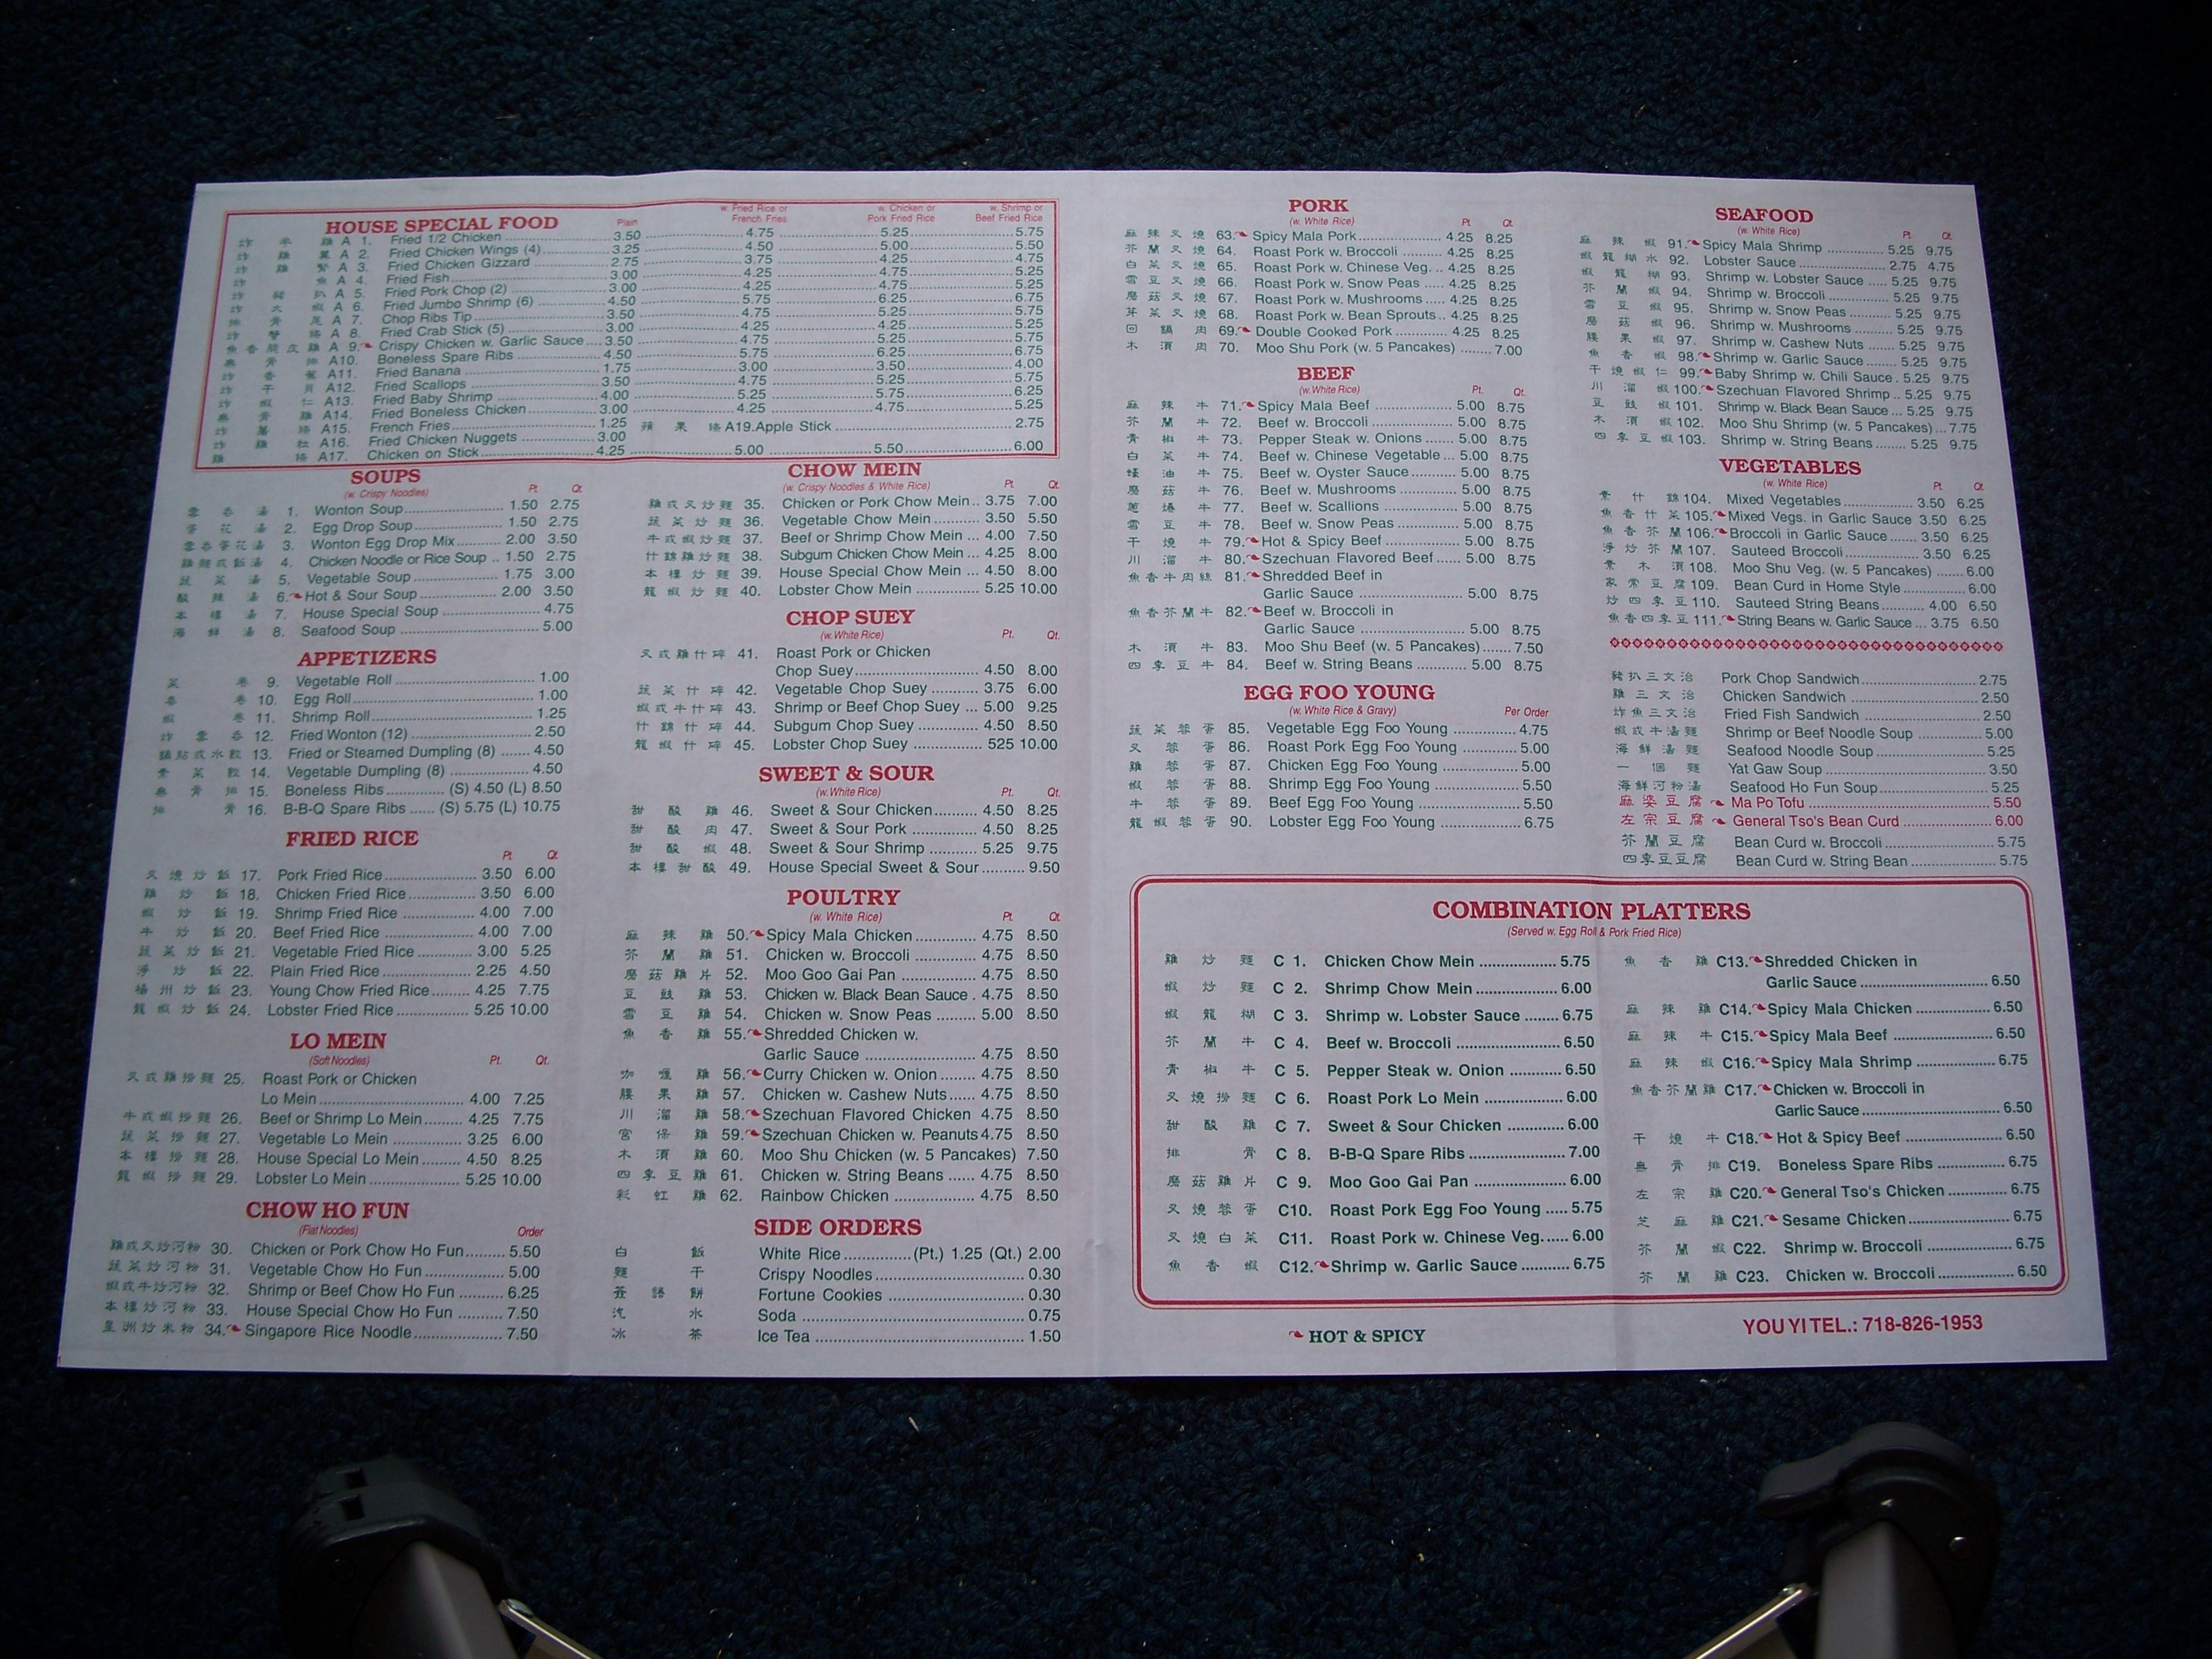 HOUSE SPECIAL FOOD
Plain w. Fried Rice or French Fries w. Chicken or Pork Fried Rice w. Shrimp or Beef Fried Rice
炸半雞 A 1. Fried 1/2 Chicken 3.50 4.75 5.25 5.75
炸雞翼 A 2. Fried Chicken Wings (4) 3.25 4.50 5.00 5.50
炸雞腎 A 3. Fried Chicken Gizzard 2.75 3.75 4.25 4.75
炸魚 A 4. Fried Fish 3.00 4.25 4.75 5.25
炸豬扒 A 5. Fried Pork Chop (2) 3.00 4.25 4.75 5.25
炸大蝦 A 6. Fried Jumbo Shrimp (6) 4.50 5.75 6.25 6.75
排骨尾 A 7. Chop Ribs Tip 3.50 4.75 5.25 5.25
炸蟹條 A 8. Fried Crab Stick (5) 3.00 4.25 4.25 5.25
魚香脆皮雞 A 9. Crispy Chicken w. Garlic Sauce 3.50 4.75 5.25 5.25
無骨排 A10. Boneless Spare Ribs 4.50 5.75 6.25 6.75
炸香蕉 A11. Fried Banana 1.75 3.00 3.50 4.00
炸干貝 A12. Fried Scallops 3.50 4.75 5.25 5.75
炸蝦仁 A13. Fried Baby Shrimp 4.00 5.25 5.75 6.25
無骨雞 A14. Fried Boneless Chicken 3.00 4.25 4.75 5.25
炸薯條 A15. French Fries 1.25 蘋果條 A19.Apple Stick 2.75
炸雞粒 A16. Fried Chicken Nuggets 3.00
雞條 A17. Chicken on Stick 4.25 5.00 5.50 6.00
SOUPS
(w. Crispy Noodles) Pt. Qt.
雲吞湯 1. Wonton Soup 1.50 2.75
蛋花湯 2. Egg Drop Soup 1.50 2.75
雲吞蛋花湯 3. Wonton Egg Drop Mix 2.00 3.50
雞麵或飯湯 4. Chicken Noodle or Rice Soup 1.50 2.75
蔬菜湯 5. Vegetable Soup 1.75 3.00
酸辣湯 6. Hot & Sour Soup 2.00 3.50
本樓湯 7. House Special Soup 4.75
海鮮湯 8. Seafood Soup 5.00
APPETIZERS
菜卷 9. Vegetable Roll 1.00
春卷 10. Egg Roll 1.00
蝦卷 11. Shrimp Roll 1.25
炸雲吞 12. Fried Wonton (12) 2.50
鍋貼或水餃 13. Fried or Steamed Dumpling (8) 4.50
素菜餃 14. Vegetable Dumpling (8) 4.50
無骨排 15. Boneless Ribs (S) 4.50 (L) 8.50
排骨 16. B-B-Q Spare Ribs (S) 5.75 (L) 10.75
FRIED RICE
Pt. Qt.
叉燒炒飯 17. Pork Fried Rice 3.50 6.00
雞炒飯 18. Chicken Fried Rice 3.50 6.00
蝦炒飯 19. Shrimp Fried Rice 4.00 7.00
牛炒飯 20. Beef Fried Rice 4.00 7.00
蔬菜炒飯 21. Vegetable Fried Rice 3.00 5.25
淨炒飯 22. Plain Fried Rice 2.25 4.50
楊州炒飯 23. Young Chow Fried Rice 4.25 7.75
龍蝦炒飯 24. Lobster Fried Rice 5.25 10.00
LO MEIN
(Soft Noodles) Pt. Qt.
叉或雞撈麵 25. Roast Pork or Chicken
Lo Mein 4.00 7.25
牛或蝦撈麵 26. Beef or Shrimp Lo Mein 4.25 7.75
蔬菜撈麵 27. Vegetable Lo Mein 3.25 6.00
本樓撈麵 28. House Special Lo Mein 4.50 8.25
龍蝦撈麵 29. Lobster Lo Mein 5.25 10.00
CHOW HO FUN
(Flat Noodles) Order
雞或叉炒河粉 30. Chicken or Pork Chow Ho Fun 5.50
蔬菜炒河粉 31. Vegetable Chow Ho Fun 5.00
蝦或牛炒河粉 32. Shrimp or Beef Chow Ho Fun 6.25
本樓炒河粉 33. House Special Chow Ho Fun 7.50
星洲炒米粉 34. Singapore Rice Noodle 7.50
CHOW MEIN
(w. Crispy Noodles & White Rice) Pt. Qt.
雞或叉炒麵 35. Chicken or Pork Chow Mein 3.75 7.00
蔬菜炒麵 36. Vegetable Chow Mein 3.50 5.50
牛或蝦炒麵 37. Beef or Shrimp Chow Mein 4.00 7.50
什錦雞炒麵 38. Subgum Chicken Chow Mein 4.25 8.00
本樓炒麵 39. House Special Chow Mein 4.50 8.00
龍蝦炒麵 40. Lobster Chow Mein 5.25 10.00
CHOP SUEY
(w. White Rice) Pt. Qt.
叉或雞什碎 41. Roast Pork or Chicken
Chop Suey 4.50 8.00
蔬菜什碎 42. Vegetable Chop Suey 3.75 6.00
蝦或牛什碎 43. Shrimp or Beef Chop Suey 5.00 9.25
什錦什碎 44. Subgum Chop Suey 4.50 8.50
龍蝦什碎 45. Lobster Chop Suey 525 10.00
SWEET & SOUR
(w. White Rice) Pt. Qt.
甜酸雞 46. Sweet & Sour Chicken 4.50 8.25
甜酸肉 47. Sweet & Sour Pork 4.50 8.25
甜酸蝦 48. Sweet & Sour Shrimp 5.25 9.75
本樓甜酸 49. House Special Sweet & Sour 9.50
POULTRY
(w. White Rice) Pt. Qt.
麻辣雞 50. Spicy Mala Chicken 4.75 8.50
芥蘭雞 51. Chicken w. Broccoli 4.75 8.50
磨菇雞片 52. Moo Goo Gai Pan 4.75 8.50
豆豉雞 53. Chicken w. Black Bean Sauce 4.75 8.50
雪豆雞 54. Chicken w. Snow Peas 5.00 8.50
魚香雞 55. Shredded Chicken w.
Garlic Sauce 4.75 8.50
咖喱雞 56. Curry Chicken w. Onion 4.75 8.50
腰果雞 57. Chicken w. Cashew Nuts 4.75 8.50
川溜雞 58. Szechuan Flavored Chicken 4.75 8.50
宮保雞 59. Szechuan Chicken w. Peanuts 4.75 8.50
木須雞 60. Moo Shu Chicken (w. 5 Pancakes) 7.50
四季豆雞 61. Chicken w. String Beans 4.75 8.50
彩虹雞 62. Rainbow Chicken 4.75 8.50
SIDE ORDERS
白飯 White Rice (Pt.) 1.25 (Qt.) 2.00
麵干 Crispy Noodles 0.30
簽語餅 Fortune Cookies 0.30
汽水 Soda 0.75
冰茶 Ice Tea 1.50
PORK
(w. White Rice) Pt. Qt.
麻辣叉燒 63. Spicy Mala Pork 4.25 8.25
芥蘭叉燒 64. Roast Pork w. Broccoli 4.25 8.25
白菜叉燒 65. Roast Pork w. Chinese Veg. 4.25 8.25
雪豆叉燒 66. Roast Pork w. Snow Peas 4.25 8.25
磨菇叉燒 67. Roast Pork w. Mushrooms 4.25 8.25
芽菜叉燒 68. Roast Pork w. Bean Sprouts 4.25 8.25
回鍋肉 69. Double Cooked Pork 4.25 8.25
木須肉 70. Moo Shu Pork (w. 5 Pancakes) 7.00
BEEF
(w. White Rice) Pt. Qt.
麻辣牛 71. Spicy Mala Beef 5.00 8.75
芥蘭牛 72. Beef w. Broccoli 5.00 8.75
青椒牛 73. Pepper Steak w. Onions 5.00 8.75
白菜牛 74. Beef w. Chinese Vegetable 5.00 8.75
蠔油牛 75. Beef w. Oyster Sauce 5.00 8.75
磨菇牛 76. Beef w. Mushrooms 5.00 8.75
蔥爆牛 77. Beef w. Scallions 5.00 8.75
雪豆牛 78. Beef w. Snow Peas 5.00 8.75
干燒牛 79. Hot & Spicy Beef 5.00 8.75
川溜牛 80. Szechuan Flavored Beef 5.00 8.75
魚香牛肉絲 81. Shredded Beef in
Garlic Sauce 5.00 8.75
魚香芥蘭牛 82. Beef w. Broccoli in
Garlic Sauce 5.00 8.75
木須牛 83. Moo Shu Beef (w. 5 Pancakes) 7.50
四季豆牛 84. Beef w. String Beans 5.00 8.75
EGG FOO YOUNG
(w. White Rice & Gravy) Per Order
蔬菜蓉蛋 85. Vegetable Egg Foo Young 4.75
叉蓉蛋 86. Roast Pork Egg Foo Young 5.00
雞蓉蛋 87. Chicken Egg Foo Young 5.00
蝦蓉蛋 88. Shrimp Egg Foo Young 5.50
牛蓉蛋 89. Beef Egg Foo Young 5.50
龍蝦蓉蛋 90. Lobster Egg Foo Young 6.75
SEAFOOD
(w. White Rice) Pt. Qt.
麻辣蝦 91. Spicy Mala Shrimp 5.25 9.75
蝦龍糊水 92. Lobster Sauce 2.75 4.75
蝦龍糊 93. Shrimp w. Lobster Sauce 5.25 9.75
芥蘭蝦 94. Shrimp w. Broccoli 5.25 9.75
雪豆蝦 95. Shrimp w. Snow Peas 5.25 9.75
磨菇蝦 96. Shrimp w. Mushrooms 5.25 9.75
腰果蝦 97. Shrimp w. Cashew Nuts 5.25 9.75
魚香蝦 98. Shrimp w. Garlic Sauce 5.25 9.75
干燒蝦仁 99. Baby Shrimp w. Chili Sauce 5.25 9.75
川溜蝦 100. Szechuan Flavored Shrimp 5.25 9.75
豆豉蝦 101. Shrimp w. Black Bean Sauce 5.25 9.75
木須蝦 102. Moo Shu Shrimp (w. 5 Pancakes) 7.75
四季豆蝦 103. Shrimp w. String Beans 5.25 9.75
VEGETABLES
(w. White Rice) Pt. Qt.
素什錦 104. Mixed Vegetables 3.50 6.25
魚香什菜 105. Mixed Vegs. in Garlic Sauce 3.50 6.25
魚香芥蘭 106. Broccoli in Garlic Sauce 3.50 6.25
淨炒芥蘭 107. Sauteed Broccoli 3.50 6.25
素木須 108. Moo Shu Veg. (w. 5 Pancakes) 6.00
家常豆腐 109. Bean Curd in Home Style 6.00
炒四季豆 110. Sauteed String Beans 4.00 6.50
魚香四季豆 111. String Beans w. Garlic Sauce 3.75 6.50
豬扒三文治 Pork Chop Sandwich 2.75
雞三文治 Chicken Sandwich 2.50
炸魚三文治 Fried Fish Sandwich 2.50
蝦或牛湯麵 Shrimp or Beef Noodle Soup 5.00
海鮮湯麵 Seafood Noodle Soup 5.25
一個麵 Yat Gaw Soup 3.50
海鮮河粉湯 Seafood Ho Fun Soup 5.25
麻婆豆腐 Ma Po Tofu 5.50
左宗豆腐 General Tso's Bean Curd 6.00
芥蘭豆腐 Bean Curd w. Broccoli 5.75
四季豆豆腐 Bean Curd w. String Bean 5.75
COMBINATION PLATTERS
(Served w. Egg Roll & Pork Fried Rice)
雞炒麵 C 1. Chicken Chow Mein 5.75
蝦炒麵 C 2. Shrimp Chow Mein 6.00
蝦龍糊 C 3. Shrimp w. Lobster Sauce 6.75
芥蘭牛 C 4. Beef w. Broccoli 6.50
青椒牛 C 5. Pepper Steak w. Onion 6.50
叉燒撈麵 C 6. Roast Pork Lo Mein 6.00
甜酸雞 C 7. Sweet & Sour Chicken 6.00
排骨 C 8. B-B-Q Spare Ribs 7.00
磨菇雞片 C 9. Moo Goo Gai Pan 6.00
叉燒蓉蛋 C10. Roast Pork Egg Foo Young 5.75
叉燒白菜 C11. Roast Pork w. Chinese Veg. 6.00
魚香蝦 C12. Shrimp w. Garlic Sauce 6.75
魚香雞 C13. Shredded Chicken in
Garlic Sauce 6.50
麻辣雞 C14. Spicy Mala Chicken 6.50
麻辣牛 C15. Spicy Mala Beef 6.50
麻辣蝦 C16. Spicy Mala Shrimp 6.75
魚香芥蘭雞 C17. Chicken w. Broccoli in
Garlic Sauce 6.50
干燒牛 C18. Hot & Spicy Beef 6.50
無骨排 C19. Boneless Spare Ribs 6.75
左宗雞 C20. General Tso's Chicken 6.75
芝麻雞 C21. Sesame Chicken 6.75
芥蘭蝦 C22. Shrimp w. Broccoli 6.75
芥蘭雞 C23. Chicken w. Broccoli 6.50
HOT & SPICY
YOU YI TEL.: 718-826-1953